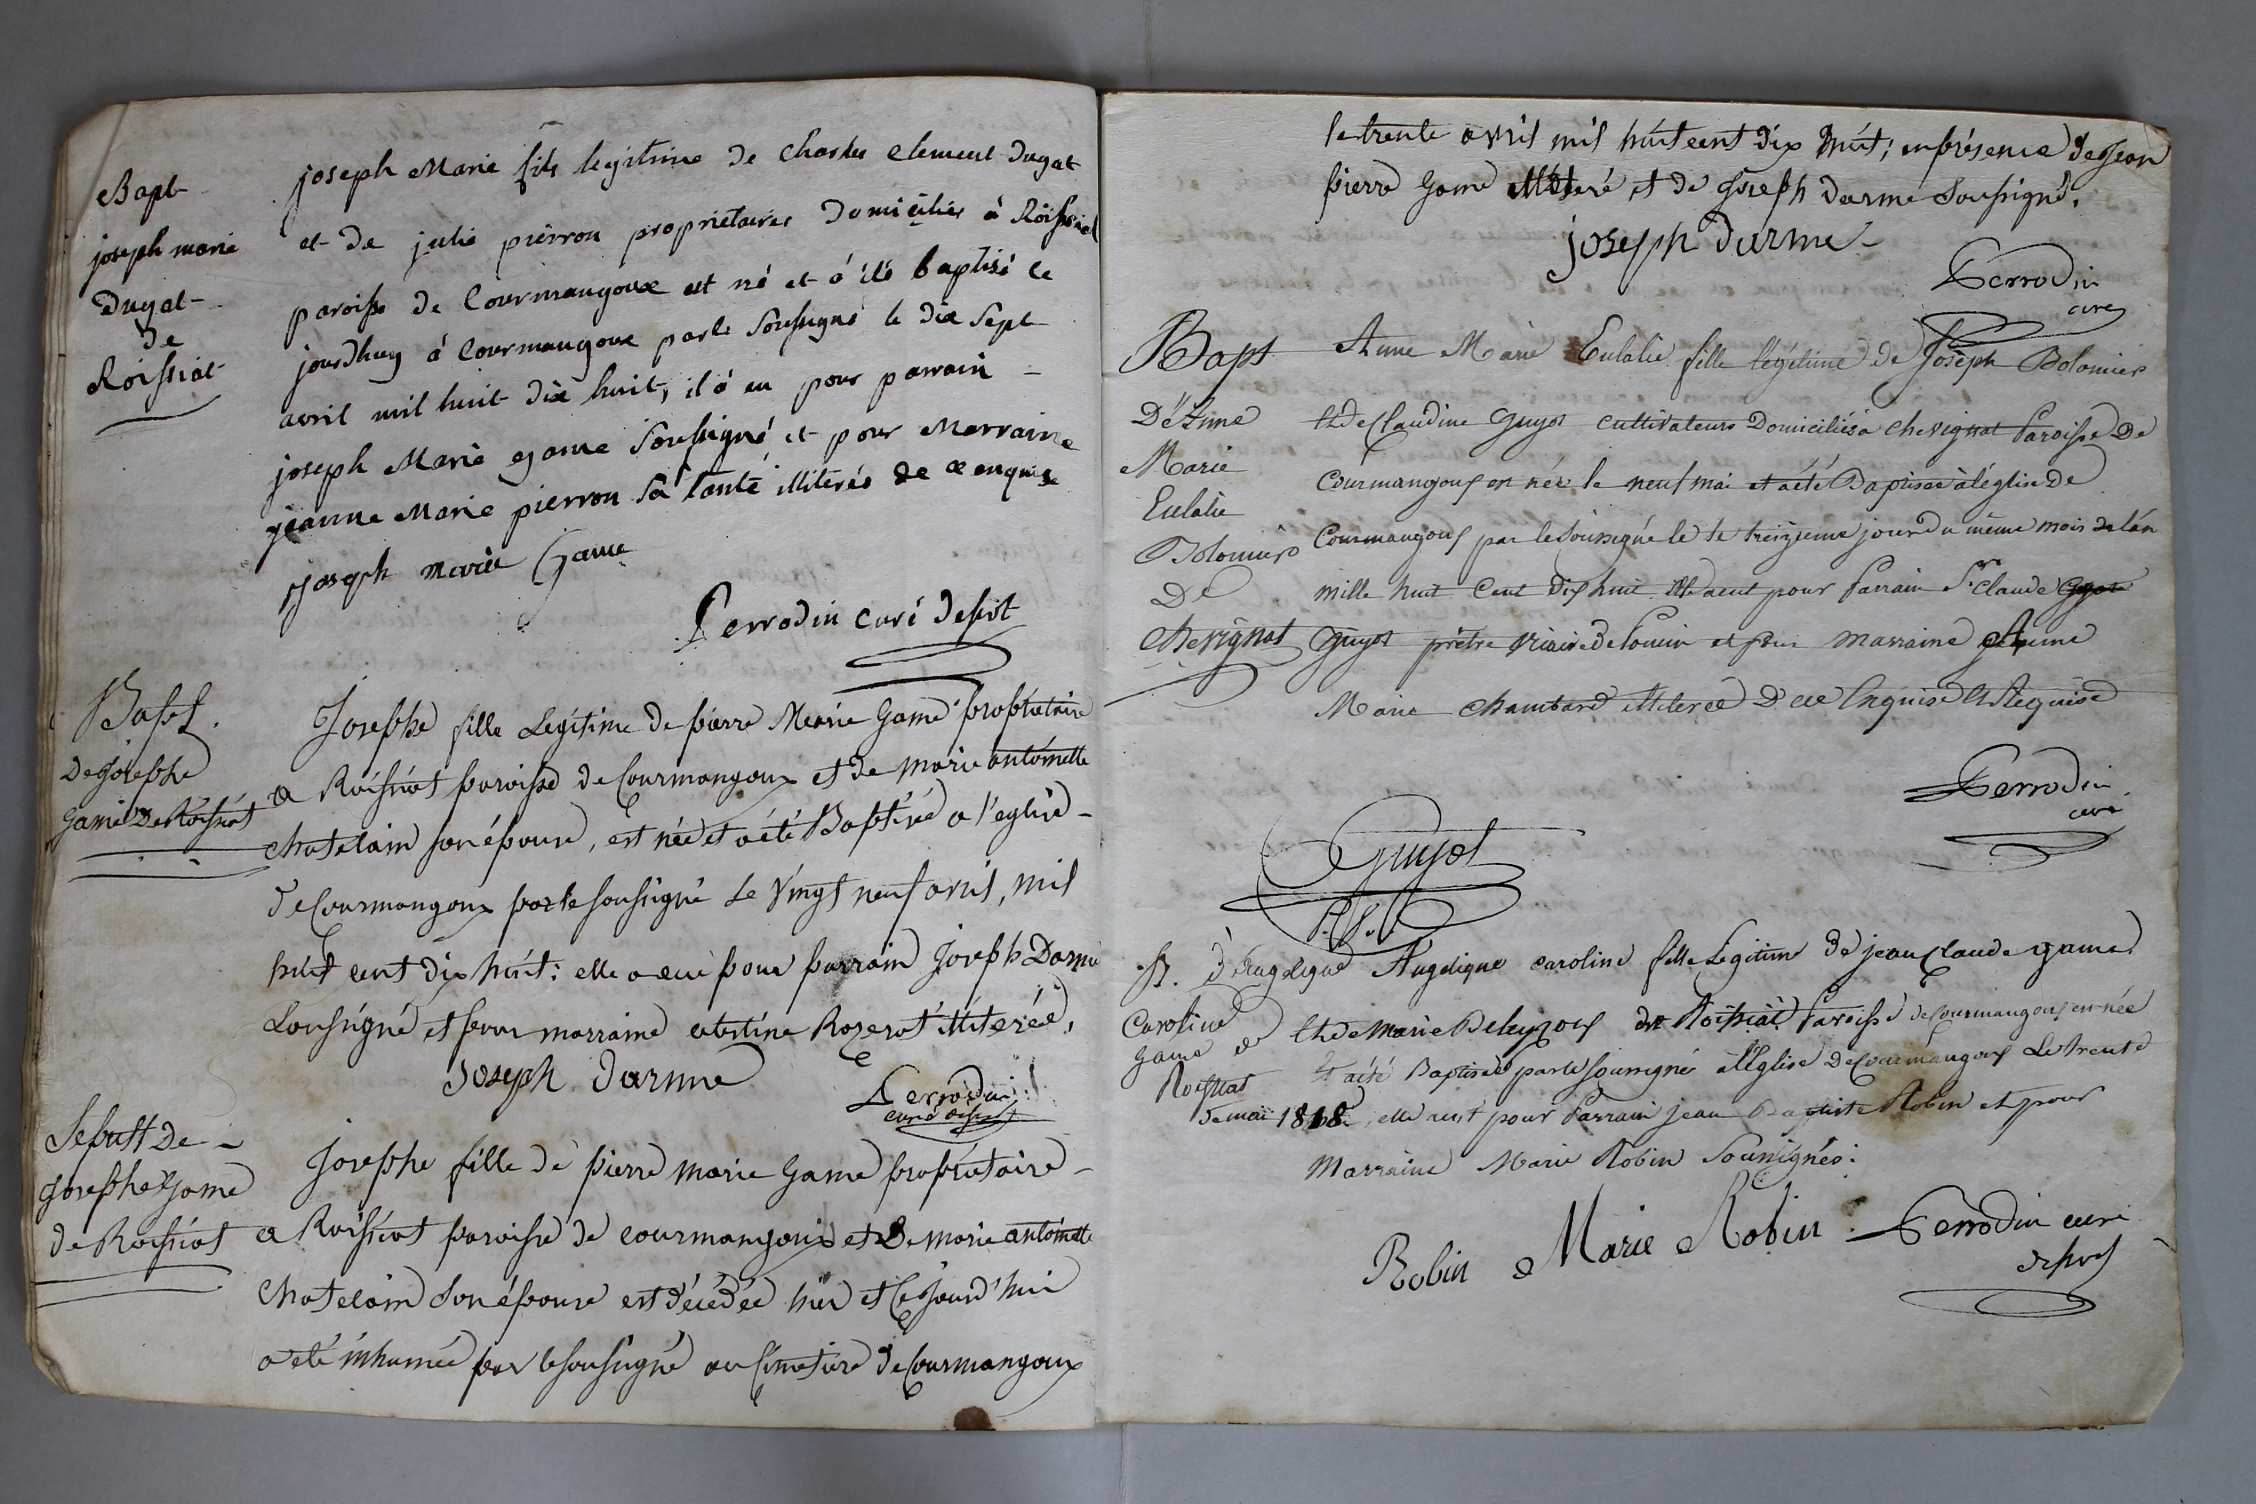 Bapt
joseph marie
Dugat
de
Roissiat
joseph Marie fils legitime de charles clement dugat
et de julie pierron proprietaires domiciliés à Roissiat
paroisse de Courmangoux est né et a été baptisé ce
jourdhuy à Courmangoux par le soussigné le dix sept
avril mil huit dix huit, il a eu pour parrain
joseph Marie game soussigné et pour Marraine
jeanne Marie pierron sa tante illiterés de ce enquise
joseph marie Game
Perrodin curé desst
Bapt.
De Josephe
Game De Roissiat
Josephe fille Legitime de pierre Marie Game propriétaire
a Roissiat paroisse de Courmangoux et de marie antoinette
chatelain son épouse, est née et a été Baptisée a l'eglise
de Courmangoux par le soussigné Le vingt neuf avril, mil
huit cent dix huit: elle a eu pour parrain Joseph Darme
Soussigné et pour marraine Rozerat illiterée,
Joseph Darme
Perrodin
curé desst
Sepult De
Josephe Game
de Roissiat
Josephe fille de pierre marie Game propriétaire
a Roissiat paroisse de courmangoux et De marie antoinette
Chatelain son épouse est décédée hier et Cejourd'hui
a été inhumée par le soussigné au Cimetiere de Courmangoux
le trente avril mil huit cent dix huit; en présence de Jean
pierre Game illiteré et de Joseph darme Soussigné.
joseph darme
Perrodin
curé
Bapt
D'Anne
Marie
Eulalie
Bolomier
De
chevignat
Anne Marie Eulalie fille légitime de Joseph Bolomier
Et de Claudine Guyot cultivateurs Domiciliés à chevignat Paroisse De
Courmangoux est née le neuf mai et a été Baptisée à l'églie De
Courmangoux par le soussigné le le treizieme jour du même mois de l'an
mille huit Cent dix huit Elle a eut pour Parrain Sr. Claude
Guyot prêtre viaire de et pour marraine Anne
Marie chambard illiterée D ce Enquise et Requise
Perrodin
curé
Guyot
P. V.
B. d'Angelique
Caroline
Game de
Roissiat
Angelique caroline fille Légitime de jean Claude game
Et de Marie de Roissiat Paroisse de Courmangoux est née
Et a été Baptisée par le soussigné à l'Eglise De Courmangoux Le trente
de mai 1818. elle a eut pour Parrain jean Baptiste Robin et pour
Marraine Marie Robin Soussignés:
Robin Marie Robin Perrodin curé
desst